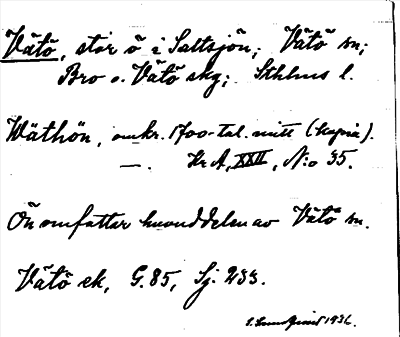 Vätö, stor ö i Saltsjön; Vätö sn;
Bro o. Vätö skg; Sthlms l.
Wäthön, omkr. 1700-tal. mitt (kopia).
—. Kr A, XXII, N:o 35.
Ön omfattar huvuddelen av Vätö sn.
Vätö ek, G. 85, Sj. 233.
1936.